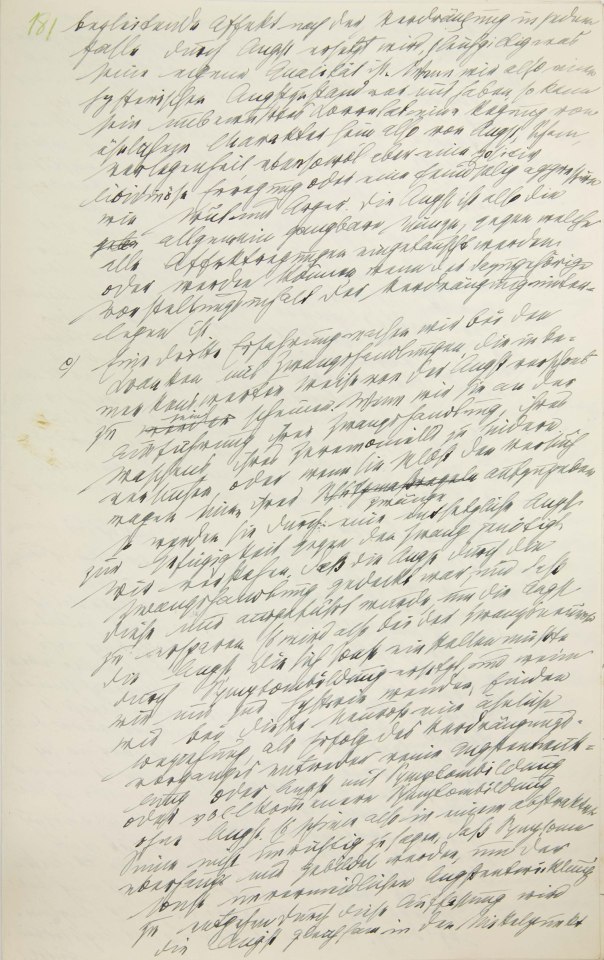 181 begleitende Affekt nach der Verdrängung in jedem
Falle durch Angst ersetzt wird, gleichgiltig was
seine eigene Qualität ist. Wenn wir also einen
hysterischen Angstzustand vor uns haben, so kann
sein unbewusstes Korrelat eine Regung von
ähnlichem Charakter sein also von Angst, Scham,
Verlegenheit ebensowol aber eine positiv
libidinöse Erregung oder eine feindselig aggressive
wie Wut und Ärger. Die Angst ist also die
allgemein gangbare Münze, gegen welche
alle Affektregungen eingetauscht werden
oder werden können wenn der dazugehörige
Vorstellungsinhalt der Verdrängung unter-
legen ist.
c) Eine dritte Erfahrung machen wir bei den
Kranken mit Zwangshandlungen, die in be-
merkenswerter Weise von der Angst verschont
zu sein scheinen. Wenn wir sie an der
Ausführung ihrer Zwangshandlung, ihres
Waschens ihres Zeremoniells zu hindern
versuchen, oder wenn sie selbst den Versuch
wagen einen ihrer Zwänge aufzugeben
so werden sie durch eine entsetzliche Angst
zur Gefügigkeit gegen den Zwang genötigt
Wir verstehen, daß die Angst durch die
Zwangshandlung gedeckt war, und daß
diese nur ausgeführt wurde, um die Angst
zu ersparen. Es wird also bei der Zwangsneurose
die Angst die sich sonst einstellen müßte
durch Symptombildung ersetzt, und wenn
wir uns zur Hysterie wenden, finden
wir bei dieser Neurose eine ähnliche
Beziehung, als Erfolg des Verdrängungs-
vorganges entweder reine Angstentwick-
lung oder Angst mit Symptombildung
oder vollkommenere Symptombildung
ohne Angst. Es schiene also in einem abstrakten
Sinne nicht unrichtig zu sagen, daß Symptome
überhaupt nur gebildet werden, um der
sonst unvermeidlichen Angstentwicklung
zu entgehen. Durch diese Auffassung wird
die Angst gleichsam in den Mittelpunkt